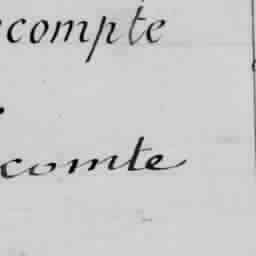 compte
comte